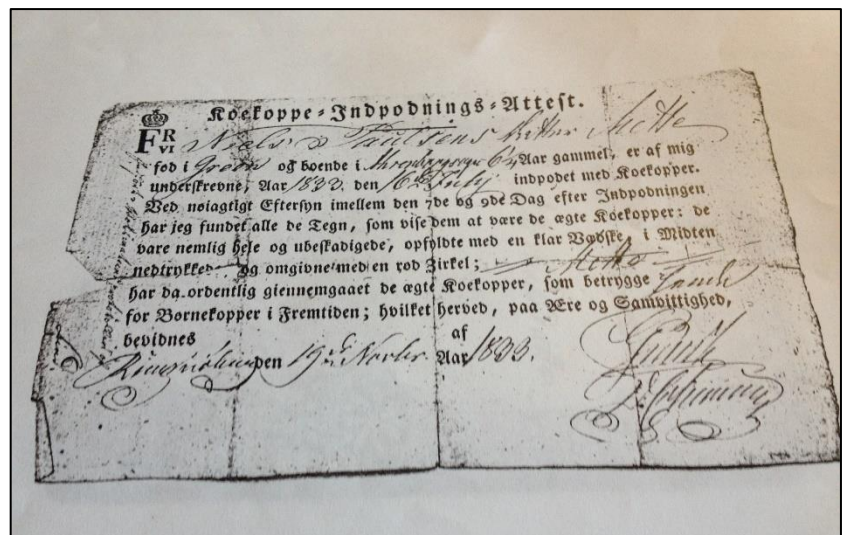 Koekoppe-Indpodnings-Attest.
F R VI Niels Paulsens Datter Mette
fød i og boende i 6½ Aar gammel, er af mig
underskrevne, Aar 1833. den 16de July indpodet med Koekopper.
Ved nøiagtigt Eftersyn imellem den 7de og 9de Dag efter Indpodningen
har jeg fundet alle de Tegn, som vise dem at være de ægte Koekopper: de
vare nemlig hele og ubeskadigede, opfyldte med en klar Vædske, i Midten
nedtrykkede og omgivne med en rød Zirkel; Mette
har da ordentlig giennemgaaet de ægte Koekopper, som betrygge hende
for Børnekopper i Fremtiden; hvilket herved, paa Ære og Samvittighed,
bevidnes af
den 19de Novbr. Aar 1833.